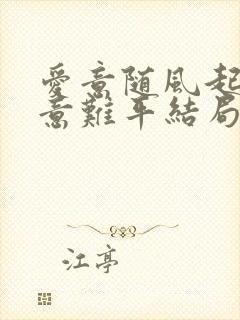 愛意随风起
意難平結局
江亭